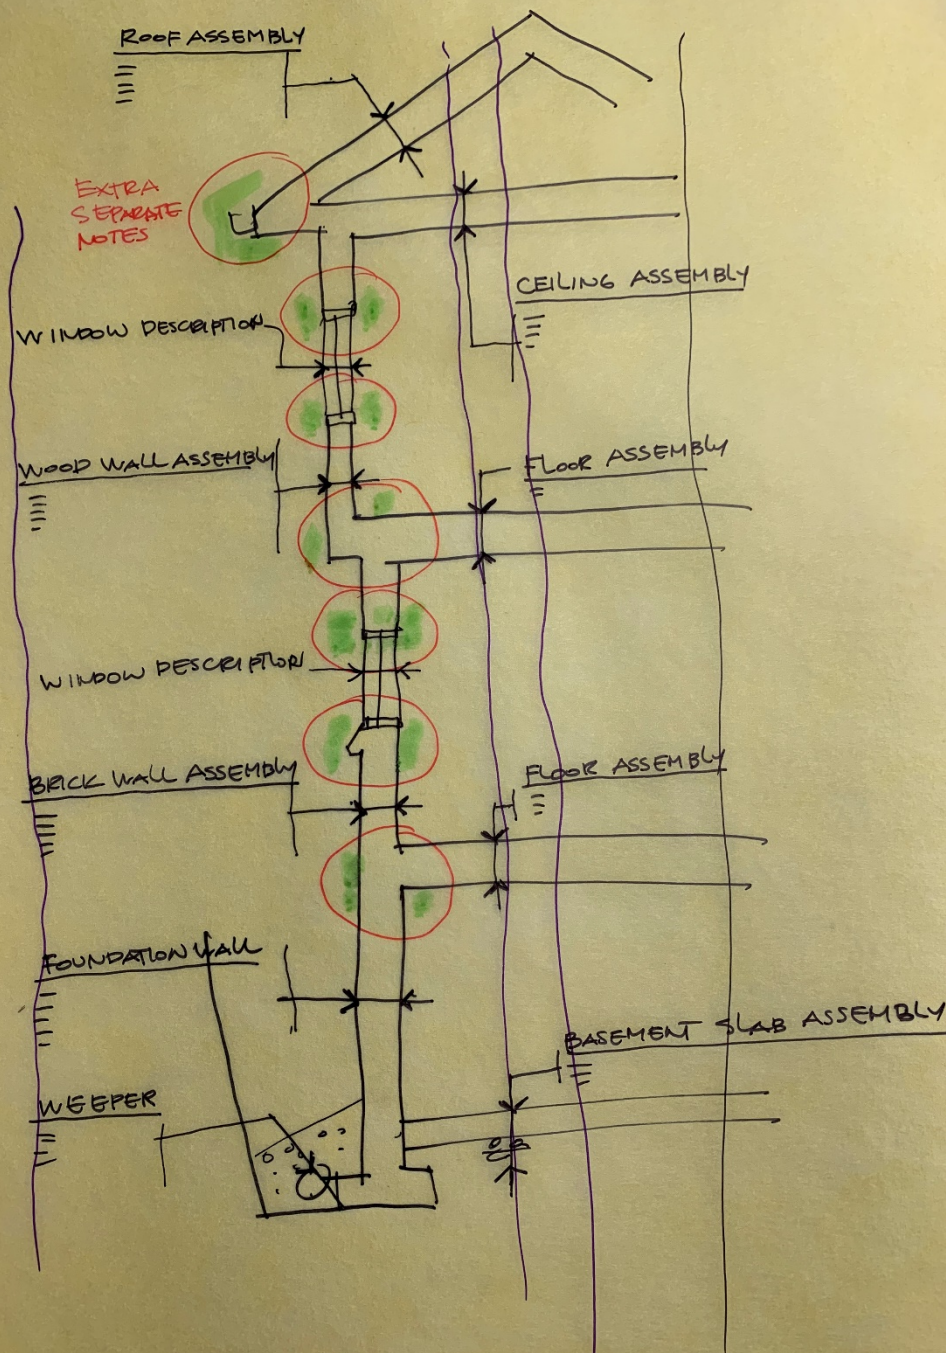 ROOF ASSEMBLY
EXTRA
SEPARATE
NOTES
CEILING ASSEMBLY
WINDOW DESCRIPTION
FLOOR ASSEMBLY
WOOD WALL ASSEMBLY
WINDOW DESCRIPTION
FLOOR ASSEMBLY
BRICK WALL ASSEMBLY
FOUNDATION WALL
BASEMENT SLAB ASSEMBLY
WEEPER